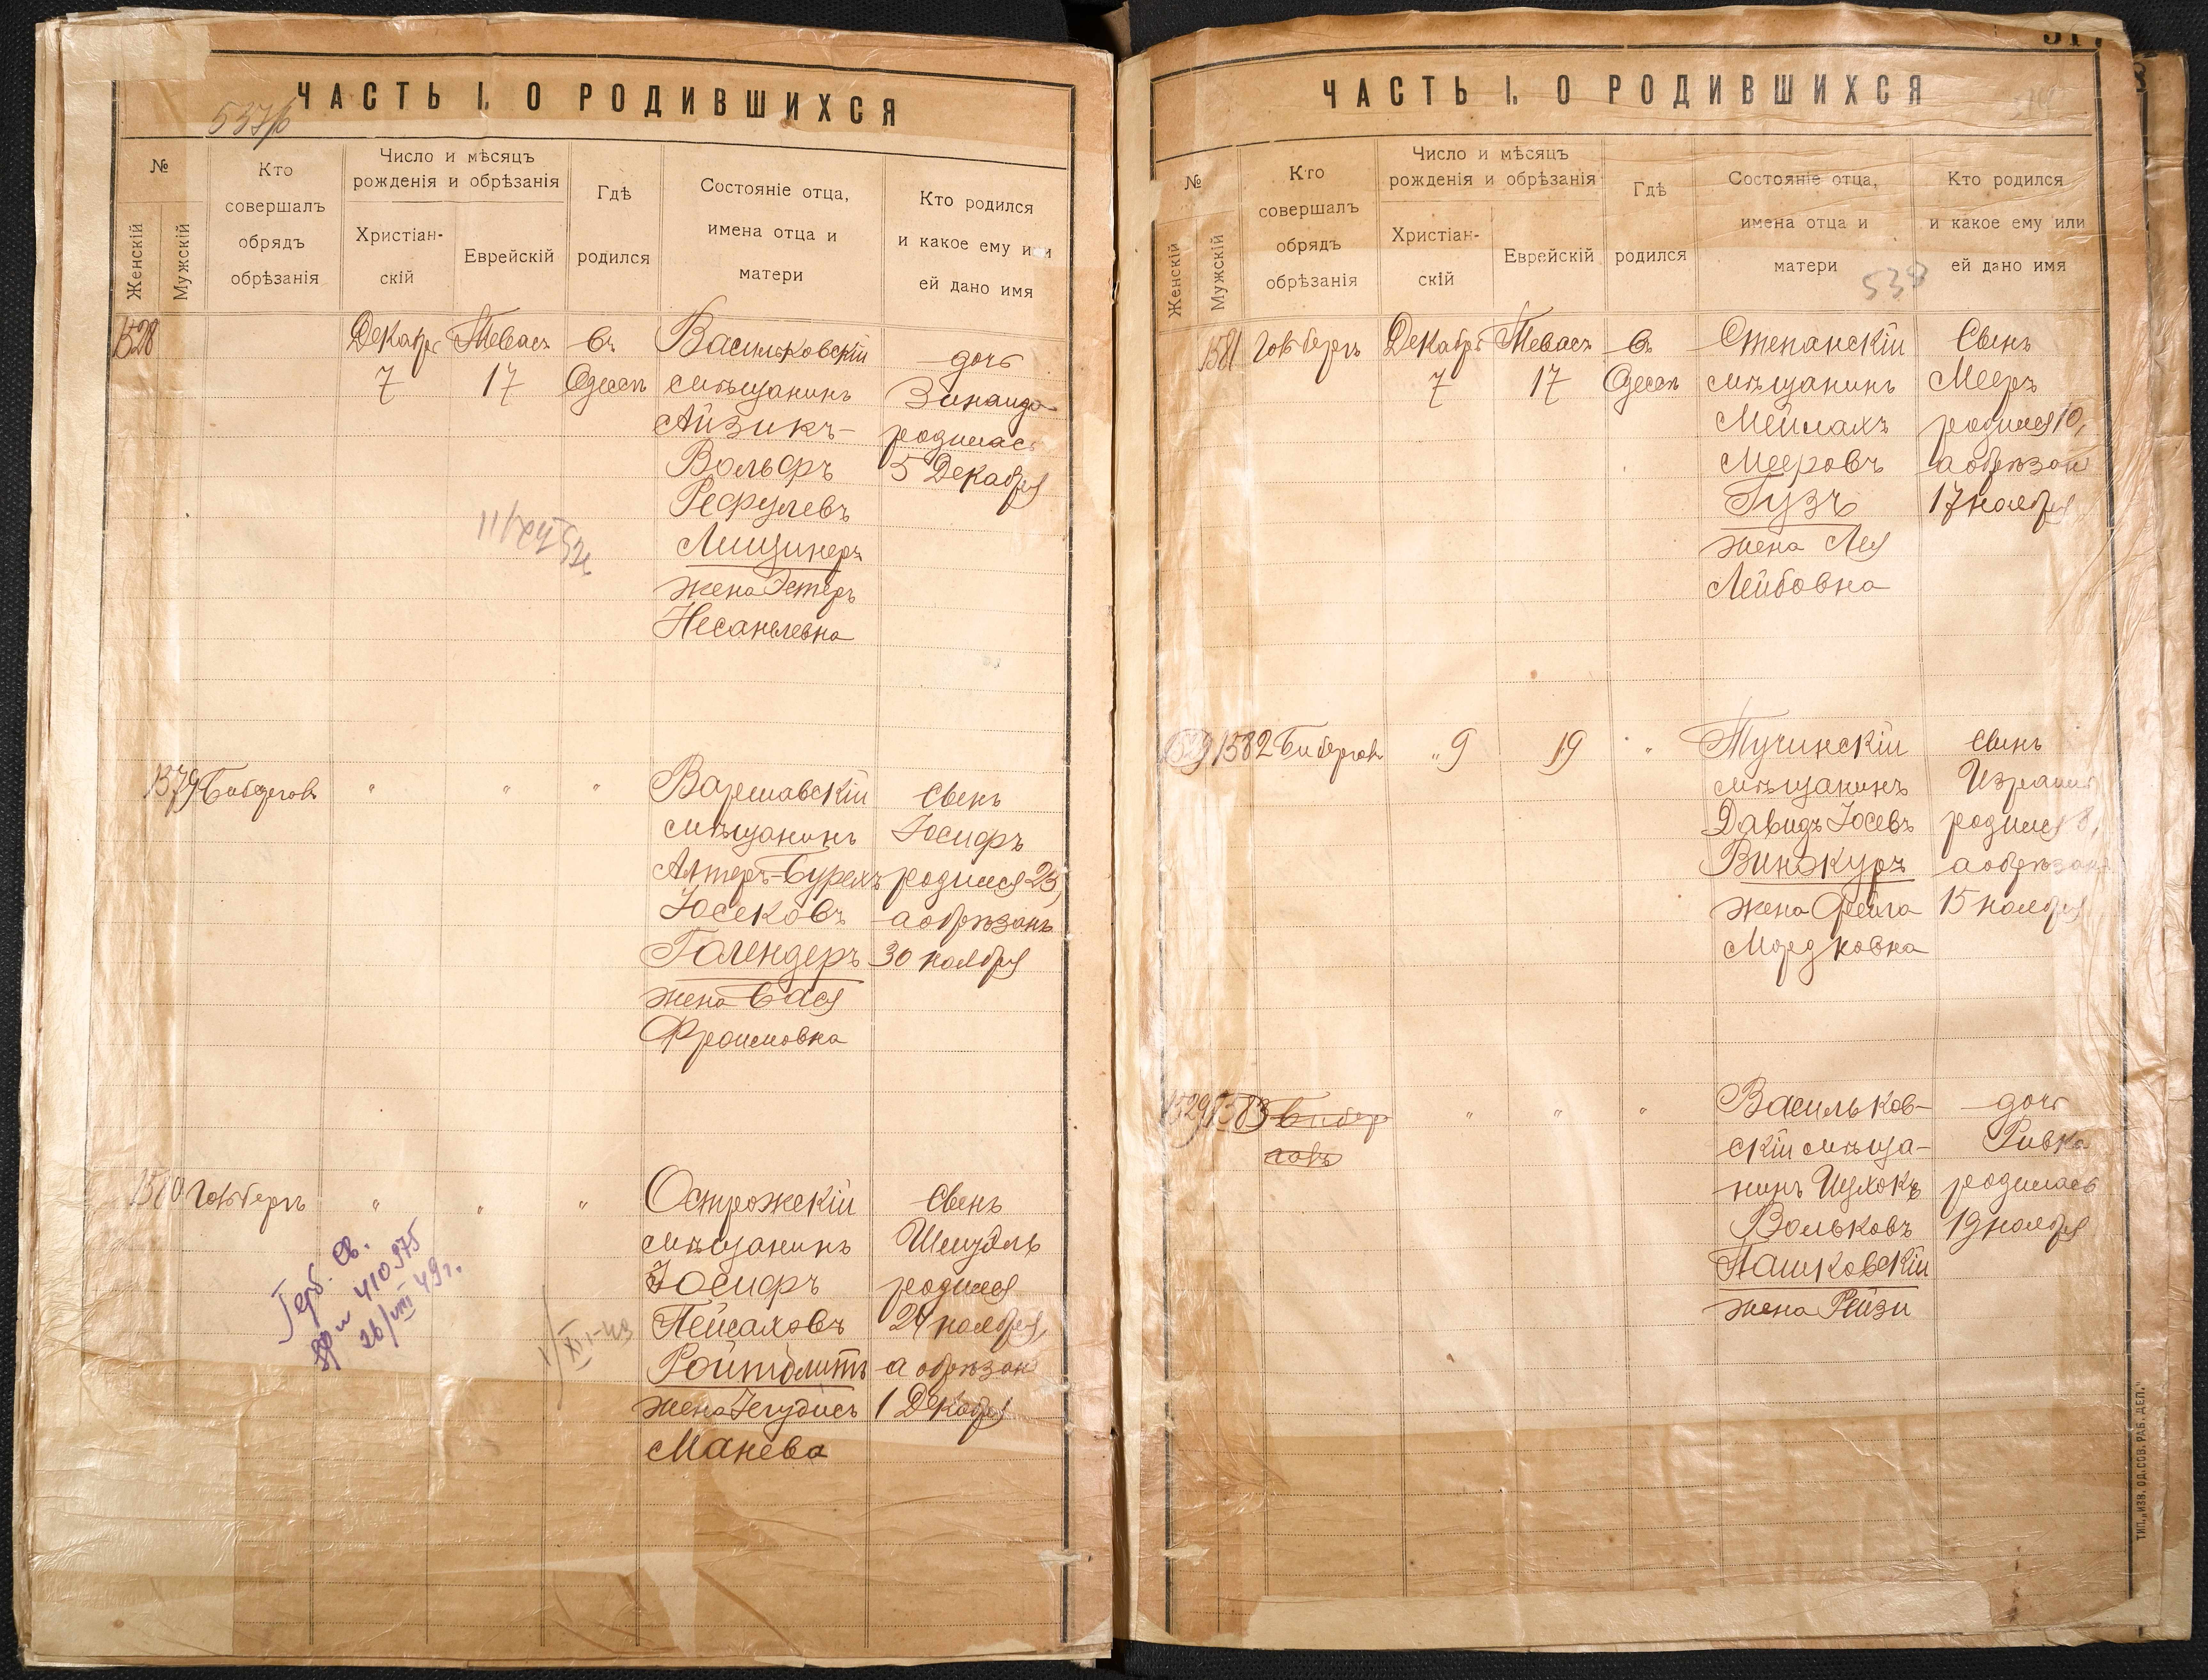 ЧАСТЬ I. О РОДИВШИХСЯ
№
Женскій
Мужскій
Кто
совершалъ
обрядъ
обрѣзанія
Число и мѣсяцъ
рожденія и обрѣзанія
Христіан-
скій
Еврейскій
Гдѣ
родился
Состояніе отца,
имена отца и
матери
Кто родился
и какое ему или
ей дано имя
1528
Декабрь
7
Тевасъ
17
въ
Одессѣ
Васильковскій
мѣщанинъ
Айзикъ-
Вольфъ
Рефулевъ
Лищинеръ
жена Эстеръ
Несанелевна
дочь
Зинаида
родилась
5 Декабря
1579
"
"
"
Варшавскій
мѣщанинъ
Алтеръ-Бурехъ
Йосековъ
Голендеръ
жена Бася
Фроимовна
Сынъ
Йосифъ
родился 23,
а обрѣзанъ
30 ноября
1580
"
"
"
Острожскій
мѣщанинъ
Йосифъ
Пейсаховъ
жена
Манева
Сынъ
родился
24 ноября,
а обрѣзанъ
1 Декабря
Герб. св.
410975
26/VIII 49г.
ЧАСТЬ I. О РОДИВШИХСЯ
№
Женскій
Мужскій
Кто
совершалъ
обрядъ
обрѣзанія
Число и мѣсяцъ
рожденія и обрѣзанія
Христіан-
скій
Еврейскій
Гдѣ
родился
Состояніе отца,
имена отца и
матери
Кто родился
и какое ему или
ей дано имя
538
1581
Декабрь
7
Тевасъ
17
въ
Одессѣ
Степанскій
мѣщанинъ
Мейлахъ
Мееровъ
Гузъ
жена Лея
Лейбовна
Сынъ
Мееръ
родился 10,
а обрѣзанъ
17 ноября
1582
" 9
19
"
Тучинскій
мѣщанинъ
Давидъ Йосевъ
Винокуръ
жена Фейга
Мордковна
Сынъ
Израиль
родился 8,
а обрѣзанъ
15 ноября
1529
"
"
"
Васильков-
скій мѣща-
нинъ Ицхокъ
Вольковъ
Пашковскій
жена Рейзи
дочь
Ривка
родилась
19 ноября
ТИП. „ИЗВ. ОД. СОВ. РАБ. ДЕП."